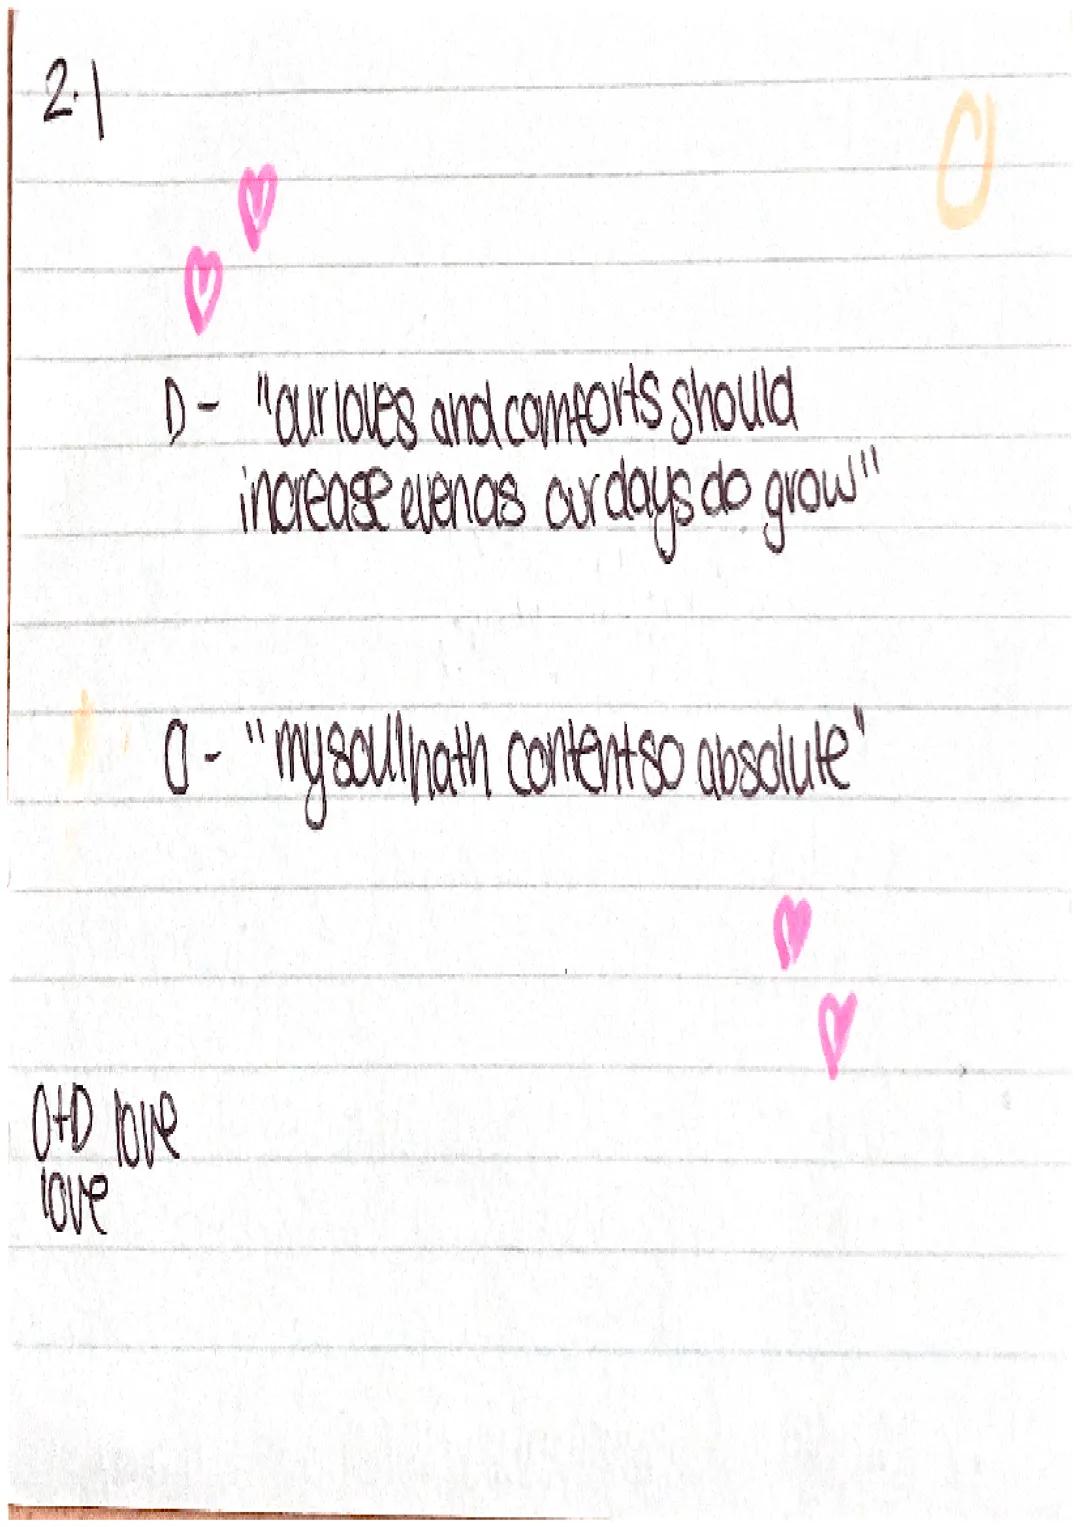 2.1
O
D - "our loves and comforts should
increase even as our days do grow"
O - "my soul hath content so absolute"
O+D love
love